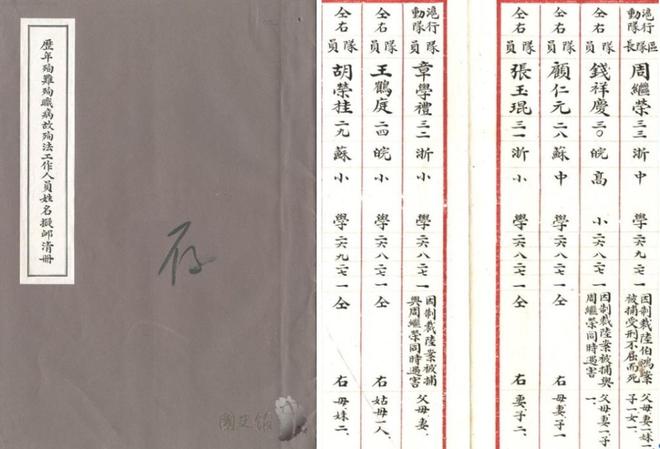 歷年殉難殉職病故殉法工作人員姓名擬卹清冊
存
國史館
滬行動隊區隊長 周繼榮 三三 浙 中學 二六九二七一 因制裁陸伯鴻案被捕受刑不屈而死 父母妻一妹一子一女一
仝右 隊員 錢祥慶 三〇 皖 高小 二六八二七一 因制裁陸案被捕與周繼榮同時遇害 父母妻一子一、
仝右 隊員 顧仁元 二八 蘇 中學 二六八二七一 仝右 母妻子一
仝右 隊員 張玉琨 三一 浙 小學 二六八二七一 仝右 妻子二、
滬行動隊 隊員 章學禮 三二 浙 小學 二六八二七一 因制裁陸案被捕與周繼榮同時遇害 父母妻、
仝右 隊員 王鶴庭 二四 皖 小學 二六八二七一 仝右 姑母一人、
仝右 隊員 胡榮桂 二九 蘇 小學 二六九二七一 仝右 母妹二、